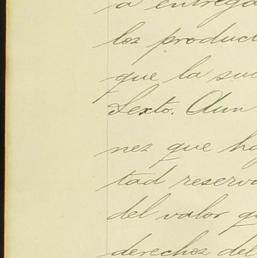 a entrega
los product
que la su
Sexto. Aun
nez que ha
tad reserv
del valor q
derechos del